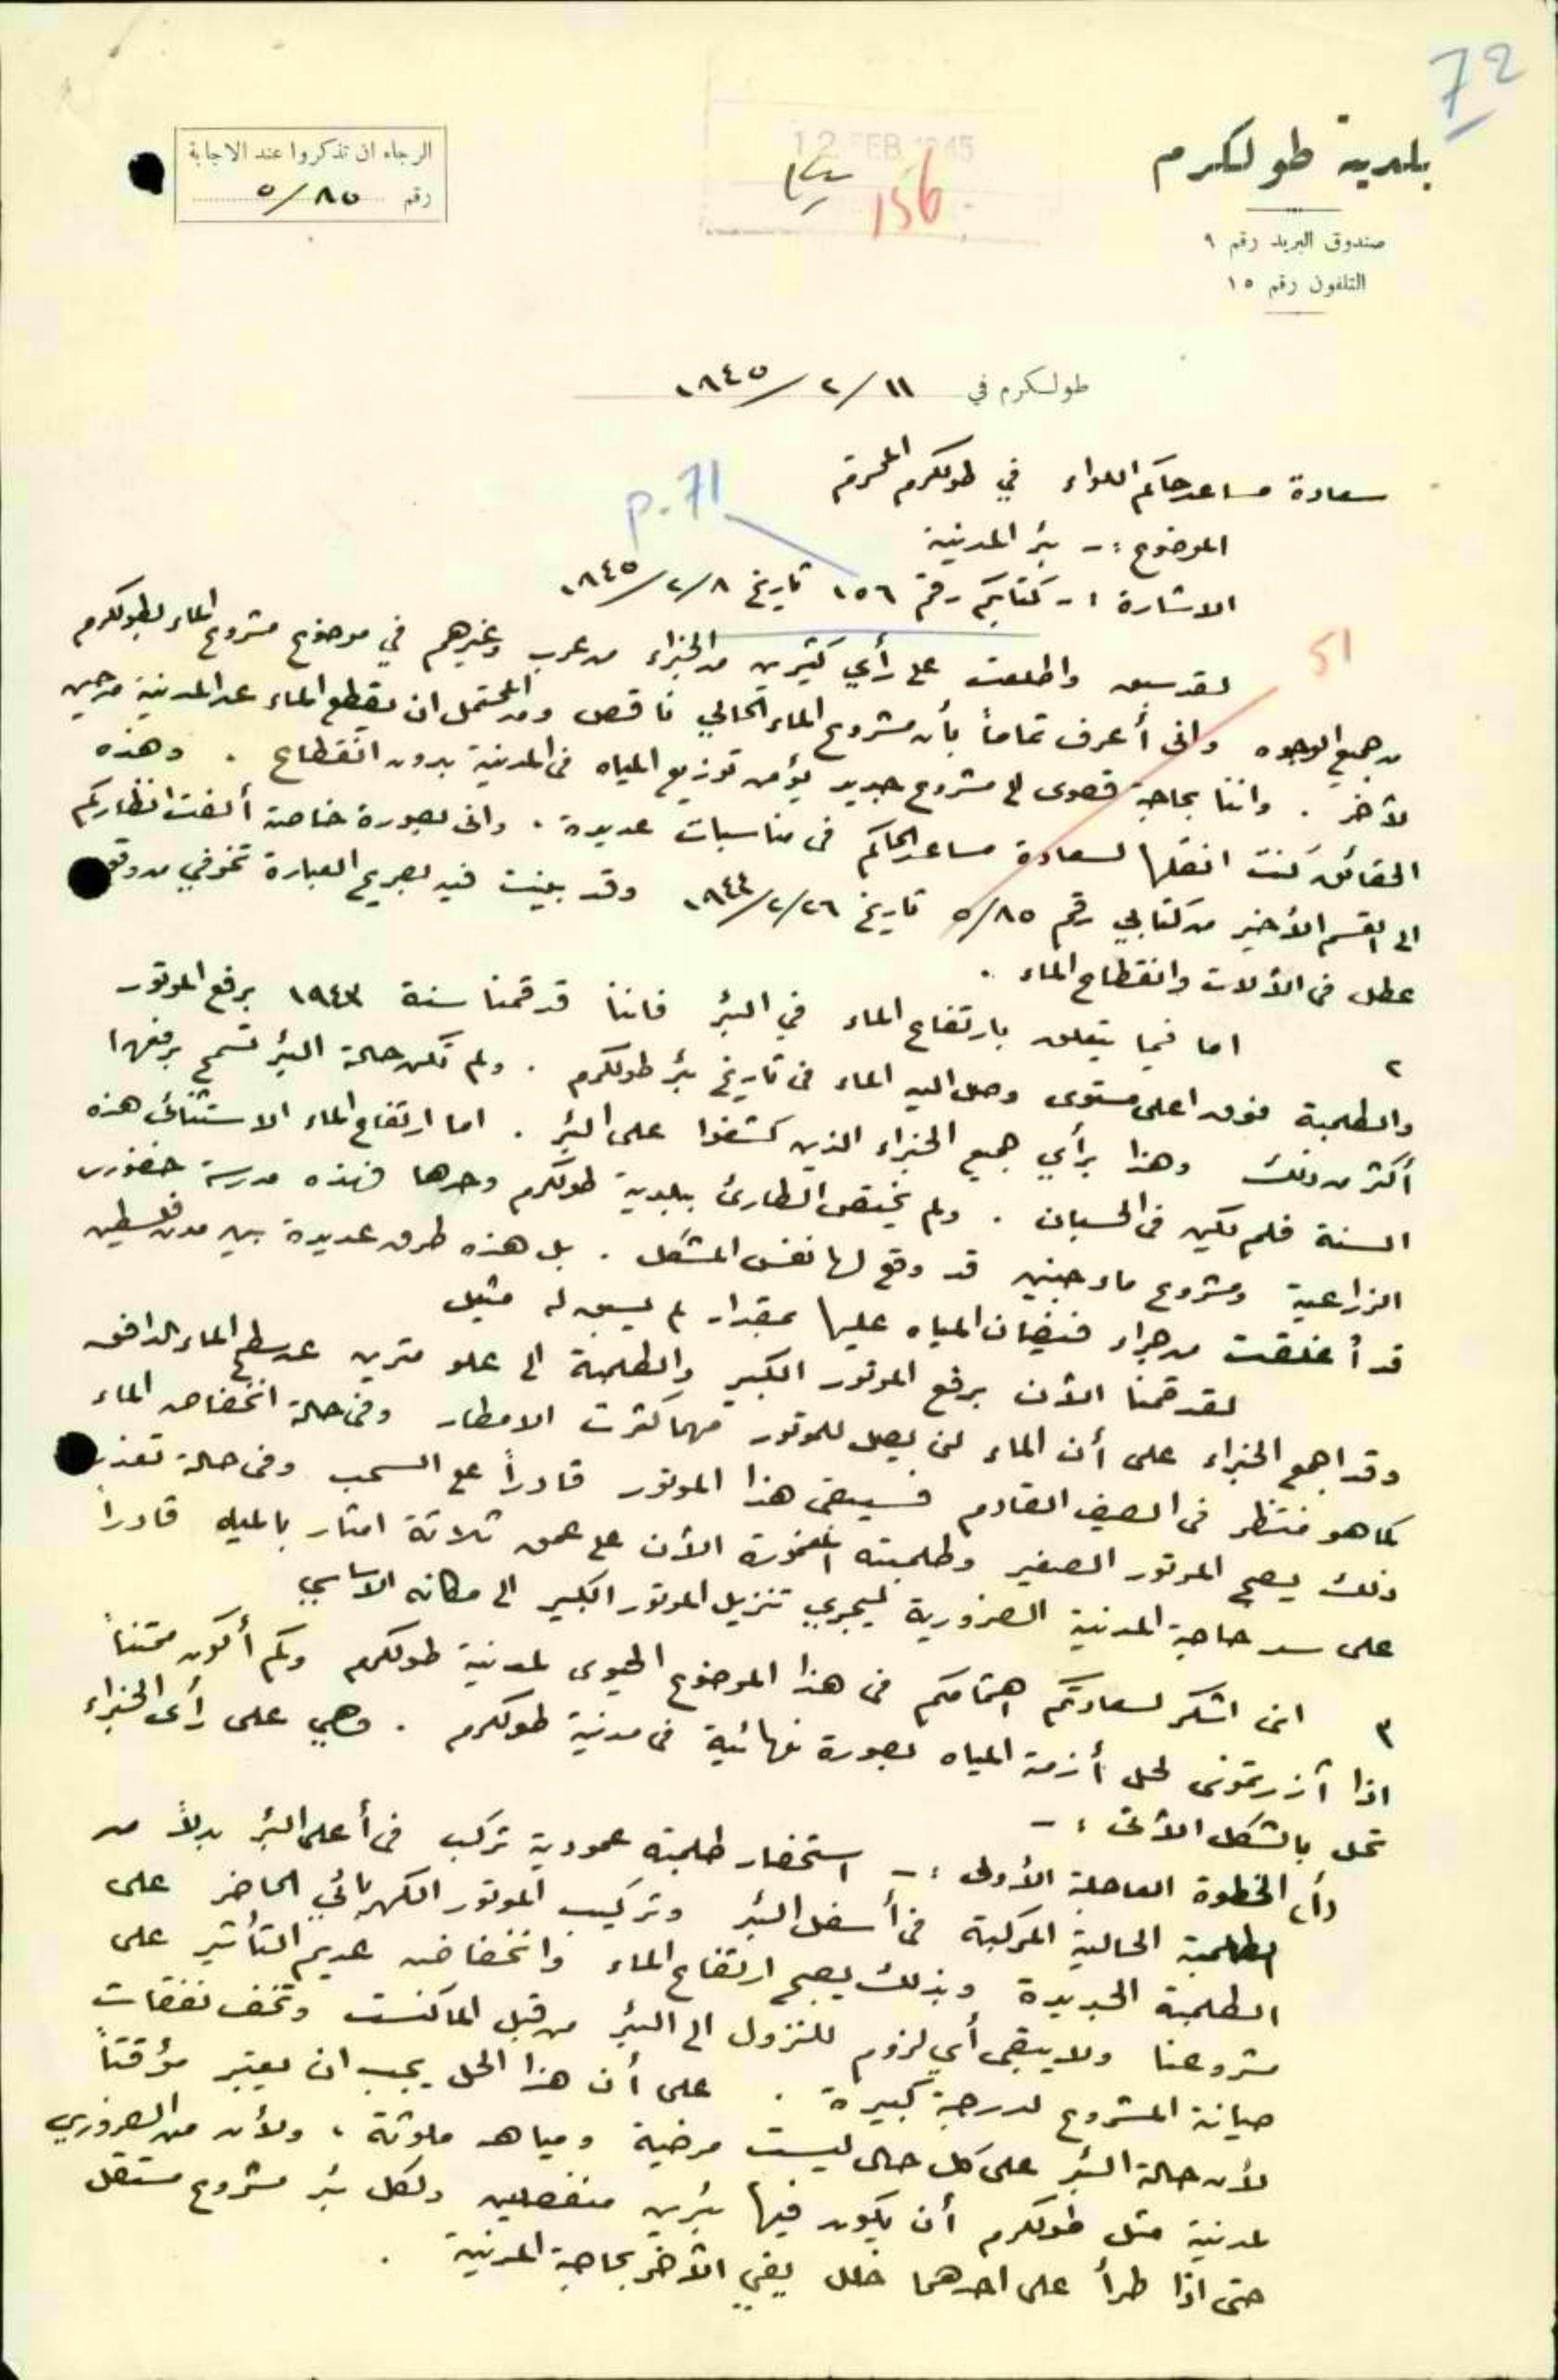 72
بلدية طولكرم
صندوق البريد رقم ٩
التلفون رقم ١٥
12 FEB 1945
156
الرجاء ان تذكروا عند الاجابة
رقم ٥/٨٥
طولكرم في ١١/٢/١٩٤٥
سعادة مساعد حاكم اللواء في طولكرم المحترم
p. 71
الموضوع :- بئر المدينة
الاشارة :- كتابكم رقم ١٥٦ تاريخ ٨/٢/١٩٤٥
51
لقد سبق واطلعت على رأي كثيرين من الخبراء من عرب وغيرهم في موضوع مشروع الماء بطولكرم
من جميع الوجوه وانى أعرف تماماً بأن مشروع الماء الحالي ناقص ومن المحتمل ان يقطع الماء عن المدينة من حين
لآخر . واننا بحاجة قصوى الى مشروع جديد يؤمن توزيع المياه فى المدينة بدون انقطاع . وهذه
الحقائق كنت انقلها لسعادة مساعد الحاكم فى مناسبات عديدة . وانى بصورة خاصة ألفت انظاركم
الى القسم الأخير من كتابي رقم ٥/٨٥ تاريخ ٢٦/٢/١٩٤٤ وقد بينت فيه بصريح العبارة تخوفي من وقوع
عطل فى الألات وانقطاع الماء .
٢ اما فيما يتعلق بارتفاع الماء في البئر فاننا قد قمنا سنة ١٩٤٣ برفع الموتور
والطلمبة فوق اعلى مستوى وصل اليه الماء فى تاريخ بئر طولكرم . ولم تكن حالة البئر تسمح برفعها
أكثر من ذلك وهذا برأي جميع الخبراء الذين كشفوا على البئر . اما ارتفاع الماء الاستثنائى هذه
السنة فلم يكن فى الحسبان . ولم يختص الطارئ ببلدية طولكرم وحدها فهذه مدرسة خضورى
الزراعية ومشروع ماء جنين قد وقع لها نفس المشكل . بل هذه طرق عديدة بين مدن فلسطين
قد أغلقت من جراء فيضان المياه عليها بمقدار لم يسبق له مثيل
لقد قمنا الآن برفع الموتور الكبير والطلمبة الى علو مترين عن سطح الماء الدافق
وقد اجمع الخبراء على أن الماء لن يصل للموتور مهما كثرت الامطار وفى حالة انخفاض الماء
كما هو منتظر فى الصيف القادم فسيبقى هذا الموتور قادراً على السحب وفى حالة تعذر
ذلك يصبح الموتور الصغير وطلمبته المغمورة الأن على عمق ثلاثة امتار بالمياه قادراً
على سد حاجة المدينة الضرورية ليجري تنزيل الموتور الكبير الى مكانه الاساسي
٣ انى اشكر لسعادتكم اهتمامكم فى هذا الموضوع الحيوى لمدينة طولكرم وكم أكون ممتناً
اذا آزرتمونى لحل أزمة المياه بصورة نهائية فى مدينة طولكرم . وهي على رأى الخبراء
تحل بالشكل الأتى :-
(أ) الخطوة العاجلة الأولى :- استحضار طلمبة عمودية تركب فى أعلى البئر بدلاً من
الطلمبة الحالية المركبة فى أسفل البئر وتركيب الموتور الكهربائي الحاضر على
الطلمبة الجديدة وبذلك يصبح ارتفاع الماء وانخفاضه عديم التأثير على
مشروعنا ولا يبقى أي لزوم للنزول الى البئر من قبل الماكنست وتخف نفقات
صيانة المشروع لدرجة كبيرة . على أن هذا الحل يجب ان يعتبر مؤقتاً
لأن حالة البئر على كل حال ليست مرضية ومياهه ملوثة ، ولأن من الضروري
لمدينة مثل طولكرم أن يكون فيها بئرين منفصلين ولكل بئر مشروع مستقل
حتى اذا طرأ على احدهما خلل يفي الآخر بحاجة المدينة .